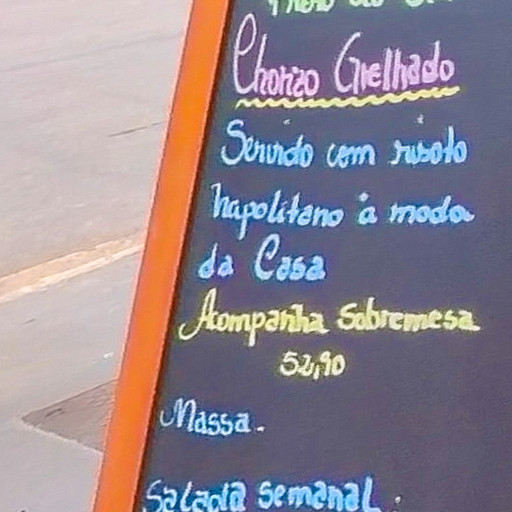 Prato do Dia
Chorizo Grelhado
Servido com risoto
napolitano à moda
da Casa
Acompanha Sobremesa
52,90
Massa.
Salada semanal.